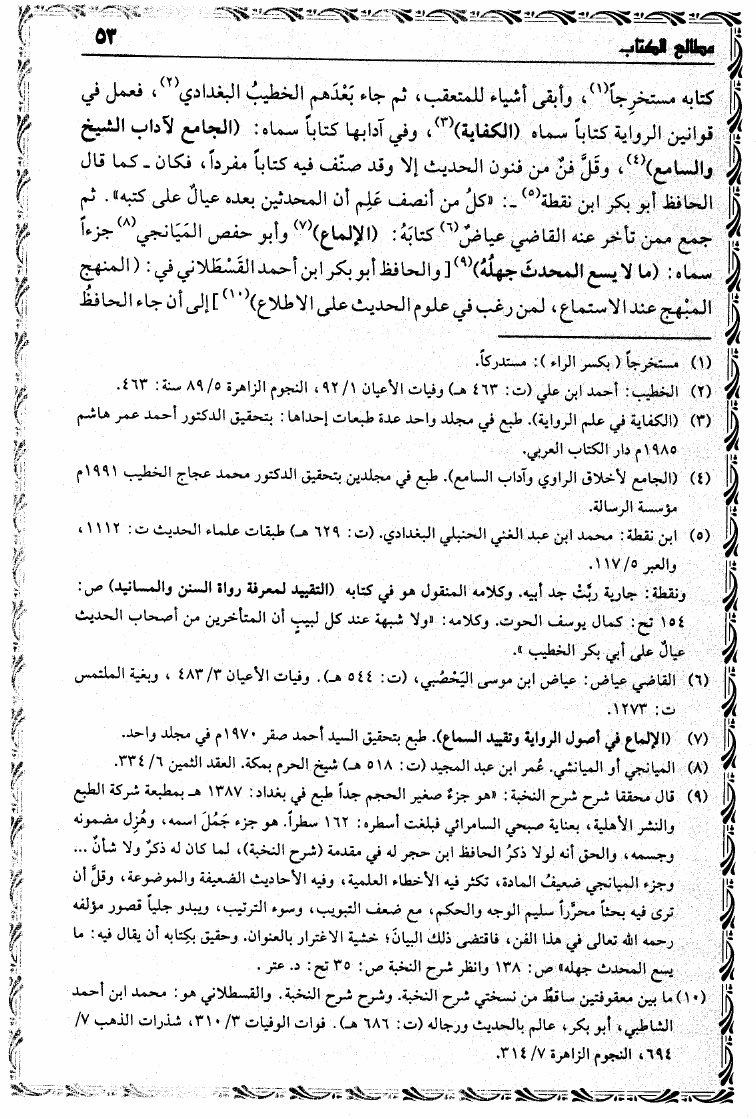 مطالع الكتاب
٥٣
كتابه مستخرِجاً(١)، وأبقى أشياء للمتعقب، ثم جاء بَعْدَهم الخطيبُ البغدادي(٢)، فعمل في
قوانين الرواية كتاباً سماه (الكفاية)(٣)، وفي آدابها كتاباً سماه: (الجامع لآداب الشيخ
والسامع)(٤)، وقَلَّ فنٌ من فنون الحديث إلا وقد صنّف فيه كتاباً مفرداً، فكان ـ كما قال
الحافظ أبو بكر ابن نقطة(٥) ـ: «كلُ من أنصف عَلِم أن المحدثين بعده عيالٌ على كتبه». ثم
جمع ممن تأخر عنه القاضي عياضٌ(٦) كتابَهُ: (الإلماع)(٧) وأبو حفص المَيَانجي(٨) جزءاً
سماه: (ما لا يسع المحدثَ جهلُهُ)(٩) [والحافظ أبو بكر ابن أحمد القَسْطَلاني في: (المنهج
المبْهج عند الاستماع، لمن رغب في علوم الحديث على الاطلاع)(١٠)] إلى أن جاء الحافظُ
(١) مستخرجاً (بكسر الراء): مستدركاً.
(٢) الخطيب: أحمد ابن علي (ت: ٤٦٣ هـ) وفيات الأعيان ٩٢/١، النجوم الزاهرة ٨٩/٥ سنة: ٤٦٣.
(٣) (الكفاية في علم الرواية). طبع في مجلد واحد عدة طبعات إحداها: بتحقيق الدكتور أحمد عمر هاشم
١٩٨٥م دار الكتاب العربي.
(٤) (الجامع لأخلاق الراوي وآداب السامع). طبع في مجلدين بتحقيق الدكتور محمد عجاج الخطيب ١٩٩١م
مؤسسة الرسالة.
(٥) ابن نقطة: محمد ابن عبد الغني الحنبلي البغدادي. (ت: ٦٢٩ هـ) طبقات علماء الحديث ت: ١١١٢،
والعبر ١١٧/٥.
ونقطة: جارية ربَّتْ جد أبيه. وكلامه المنقول هو في كتابه (التقييد لمعرفة رواة السنن والمسانيد) ص:
١٥٤ تح: كمال يوسف الحوت. وكلامه: «ولا شبهة عند كل لبيبٍ أن المتأخرين من أصحاب الحديث
عيالٌ على أبي بكر الخطيب».
(٦) القاضي عياض: عياض ابن موسى اليَحْصُبي، (ت: ٥٤٤ هـ). وفيات الأعيان ٤٨٣/٣، وبغية الملتمس
ت: ١٢٧٣.
(٧) (الإلماع في أصول الرواية وتقييد السماع). طبع بتحقيق السيد أحمد صقر ١٩٧٠م في مجلد واحد.
(٨) الميانجي أو الميانشي. عُمر ابن عبد المجيد (ت: ٥١٨ هـ) شيخ الحرم بمكة. العقد الثمين ٣٣٤/٦.
(٩) قال محققا شرح شرح النخبة: «هو جزءٌ صغير الحجم جداً طبع في بغداد: ١٣٨٧ هـ بمطبعة شركة الطبع
والنشر الأهلية، بعناية صبحي السامرائي فبلغت أسطره: ١٦٢ سطراً. هو جزء جَمُلَ اسمه، وهُزِل مضمونه
وجسمه، والحق أنه لولا ذكرُ الحافظ ابن حجر له في مقدمة (شرح النخبة)، لما كان له ذكرٌ ولا شأنٌ ...
وجزء الميانجي ضعيفُ المادة، تكثر فيه الأخطاء العلمية، وفيه الأحاديث الضعيفة والموضوعة، وقلَّ أن
ترى فيه بحثاً محرَّراً سليم الوجه والحكم، مع ضعف التبويب، وسوء الترتيب، ويبدو جلياً قصور مؤلفه
رحمه الله تعالى في هذا الفن، فاقتضى ذلك البيانَ؛ خشية الاغترار بالعنوان. وحقيق بكِتابه أن يقال فيه: ما
يسع المحدث جهله» ص: ١٣٨ وانظر شرح النخبة ص: ٣٥ تح: د. عتر.
(١٠) ما بين معقوفتين ساقطٌ من نسختي شرح النخبة. وشرح شرح النخبة. والقسطلاني هو: محمد ابن أحمد
الشاطبي، أبو بكر، عالم بالحديث ورجاله (ت: ٦٨٦ هـ). فوات الوفيات ٣١٠/٣، شذرات الذهب ٧/
٦٩٤، النجوم الزاهرة ٣١٤/٧.